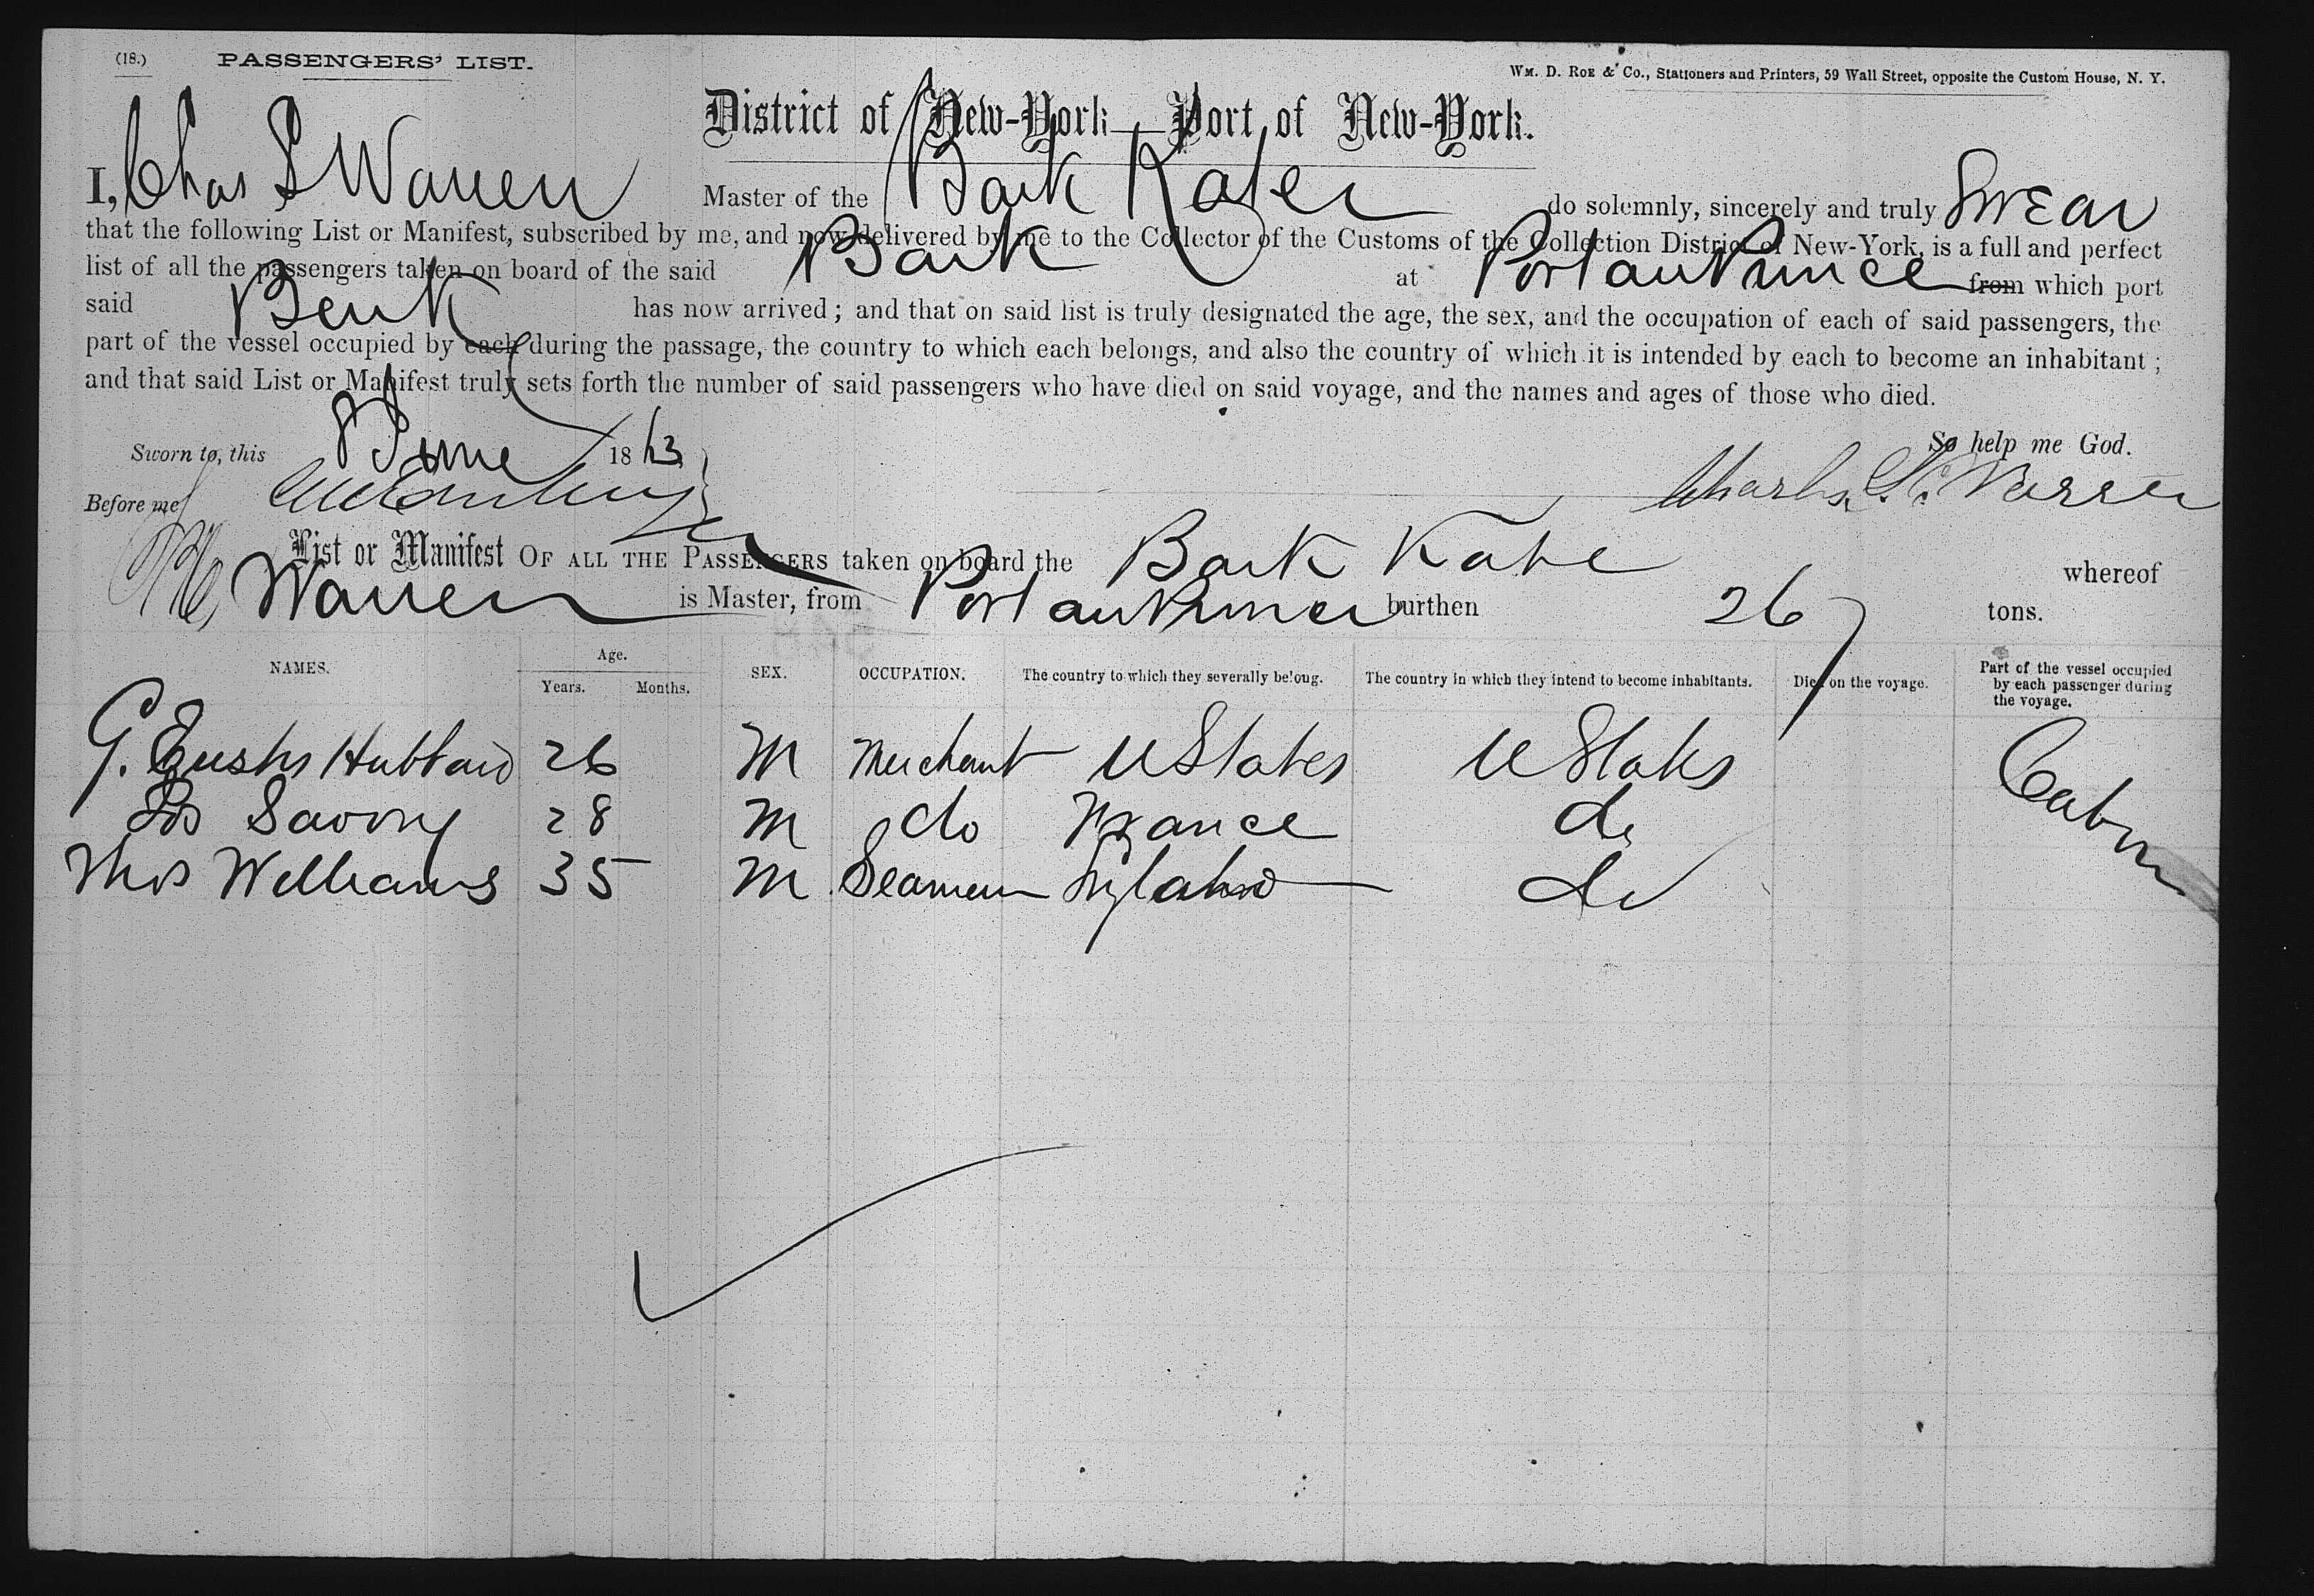 (18.) PASSENGERS' LIST.
Wm. D. Roe & Co., Stationers and Printers, 59 Wall Street, opposite the Custom House, N. Y.
District of New-York—Port of New-York.
I, Chas S Warren Master of the Bark Kate do solemnly, sincerely and truly Swear
that the following List or Manifest, subscribed by me, and now delivered by me to the Collector of the Customs of the Collection District of New-York, is a full and perfect
list of all the passengers taken on board of the said Bark at Port au Prince from which port
said Bark has now arrived; and that on said list is truly designated the age, the sex, and the occupation of each of said passengers, the
part of the vessel occupied by each during the passage, the country to which each belongs, and also the country of which it is intended by each to become an inhabitant;
and that said List or Manifest truly sets forth the number of said passengers who have died on said voyage, and the names and ages of those who died.
Sworn to, this 8 June 1863 So help me God.
Before me Charles S. Warren
List or Manifest OF ALL THE PASSENGERS taken on board the Bark Kate whereof
Warren is Master, from Port au Prince burthen 267 tons.
NAMES. Age. Years. Months. SEX. OCCUPATION. The country to which they severally belong. The country in which they intend to become inhabitants. Died on the voyage. Part of the vessel occupied by each passenger during the voyage.
G. Eustis Hubbard 26 M Merchant U States U States Cabin
Savory 28 M do France do
Thos Williams 35 M Seaman England do